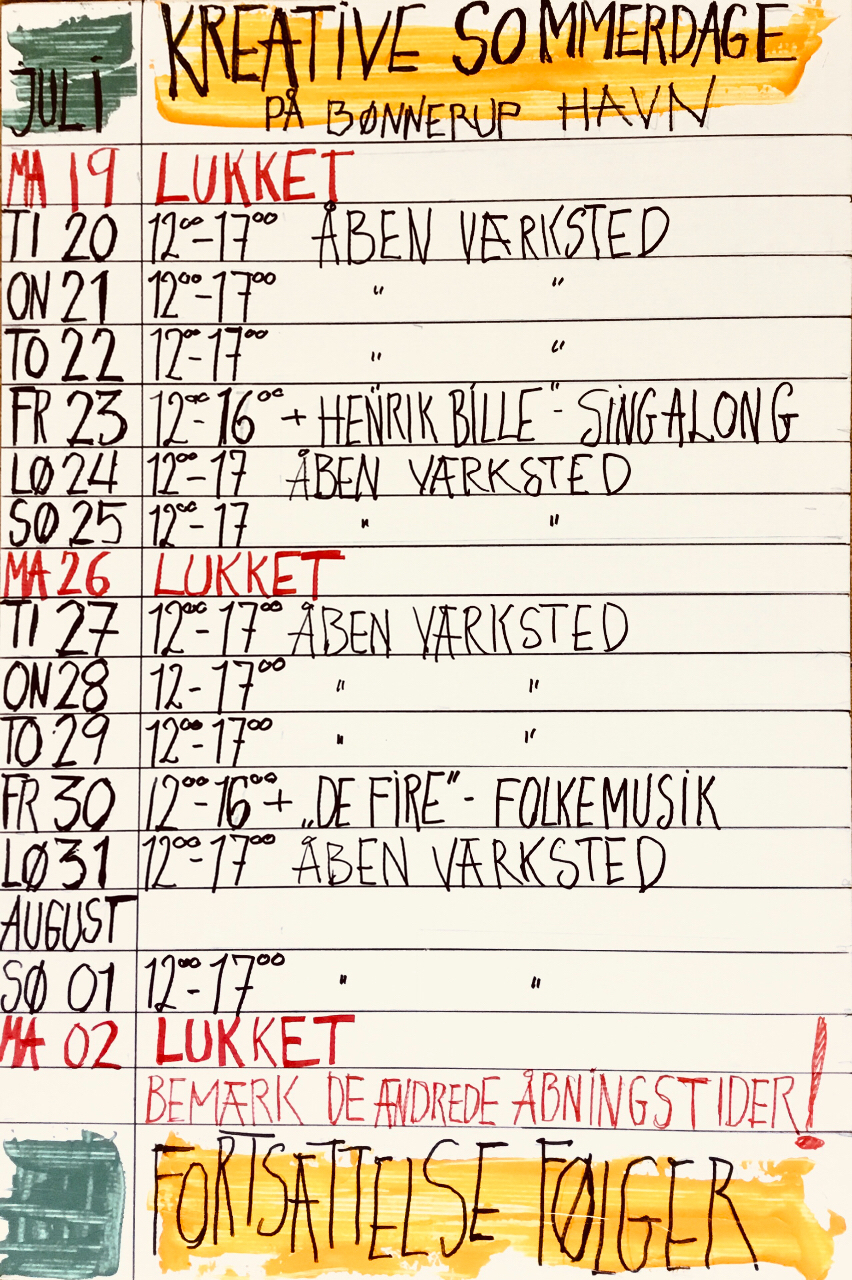 KREATIVE SOMMERDAGE
JULI
PÅ BØNNERUP HAVN
MA 19 LUKKET
TI 20 12⁰⁰-17⁰⁰ ÅBEN VÆRKSTED
ON 21 12⁰⁰-17⁰⁰ " "
TO 22 12⁰⁰-17⁰⁰ " "
FR 23 12⁰⁰-16⁰⁰ + HENRIK BILLE"- SINGALONG
LØ 24 12⁰⁰-17 ÅBEN VÆRKSTED
SØ 25 12⁰⁰-17 " "
MA 26 LUKKET
TI 27 12⁰⁰-17⁰⁰ ÅBEN VÆRKSTED
ON 28 12-17⁰⁰ " "
TO 29 12⁰⁰-17⁰⁰ " "
FR 30 12⁰⁰-16⁰⁰ + „DE FIRE"- FOLKEMUSIK
LØ 31 12⁰⁰-17⁰⁰ ÅBEN VÆRKSTED
AUGUST
SØ 01 12⁰⁰-17⁰⁰ " "
MA 02 LUKKET
BEMÆRK DE ÆNDREDE ÅBNINGSTIDER!
FORTSÆTTELSE FØLGER